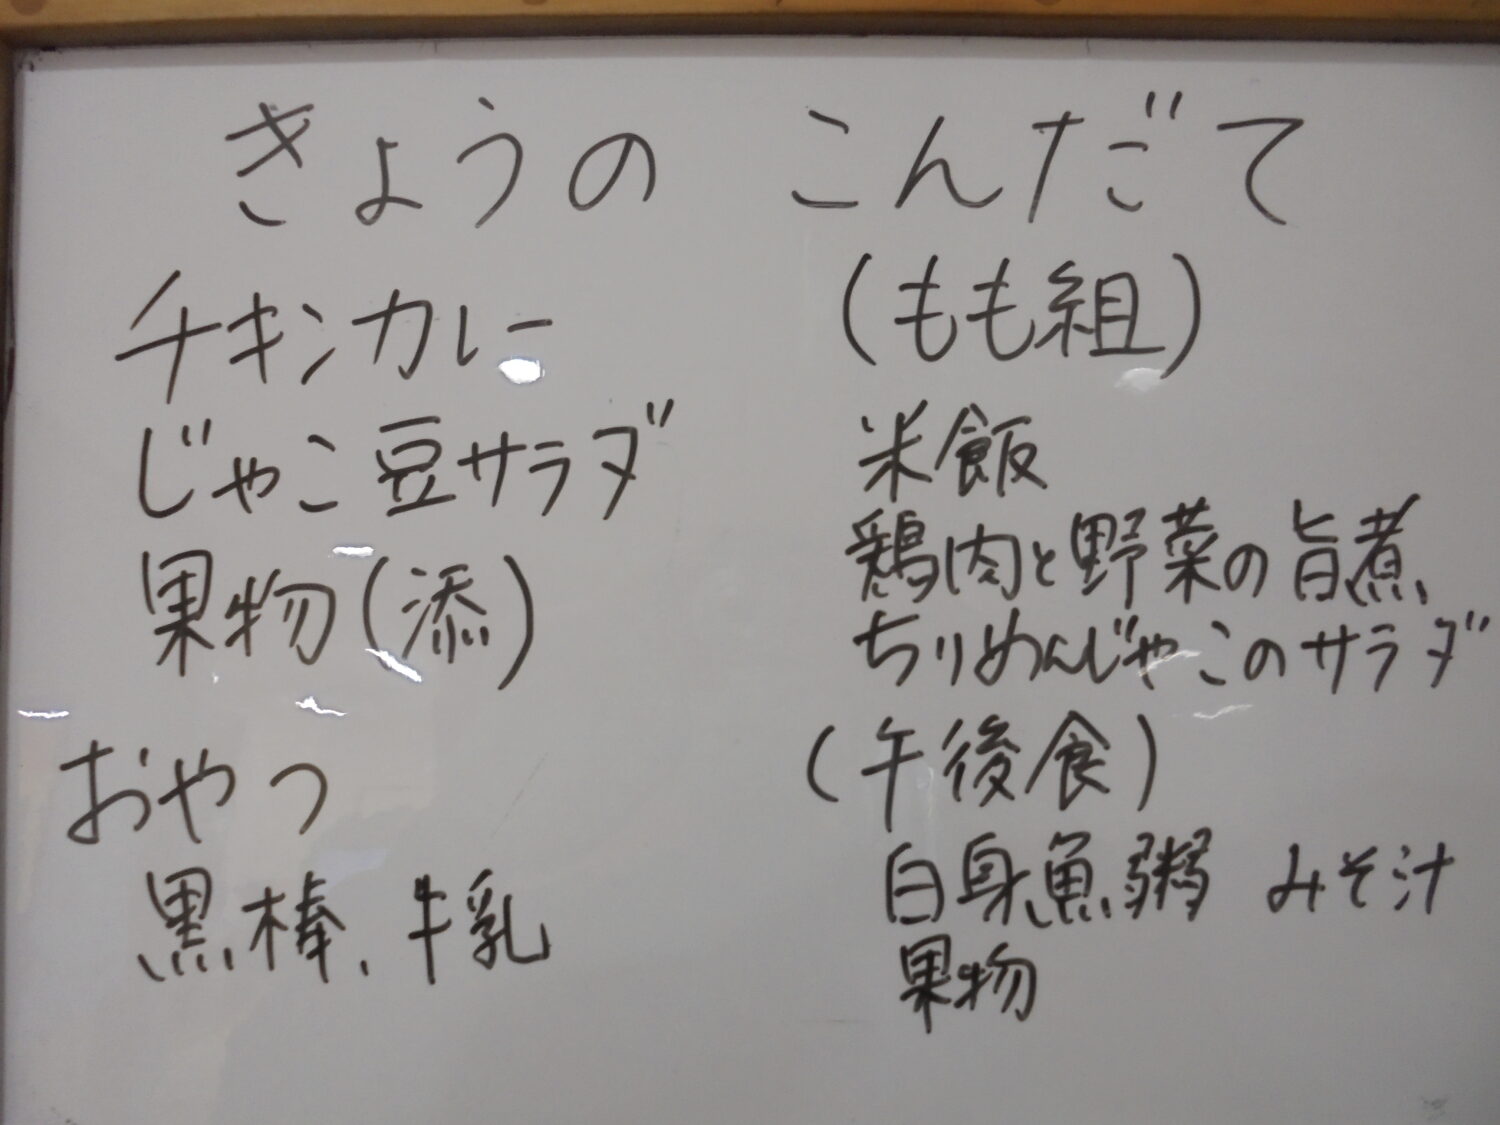 きょうの こんだて
チキンカレー
じゃこ豆サラダ
果物(添)
おやつ
黒棒、牛乳
(もも組)
米飯
鶏肉と野菜の旨煮
ちりめんじゃこのサラダ
(午後食)
白身魚粥 みそ汁
果物